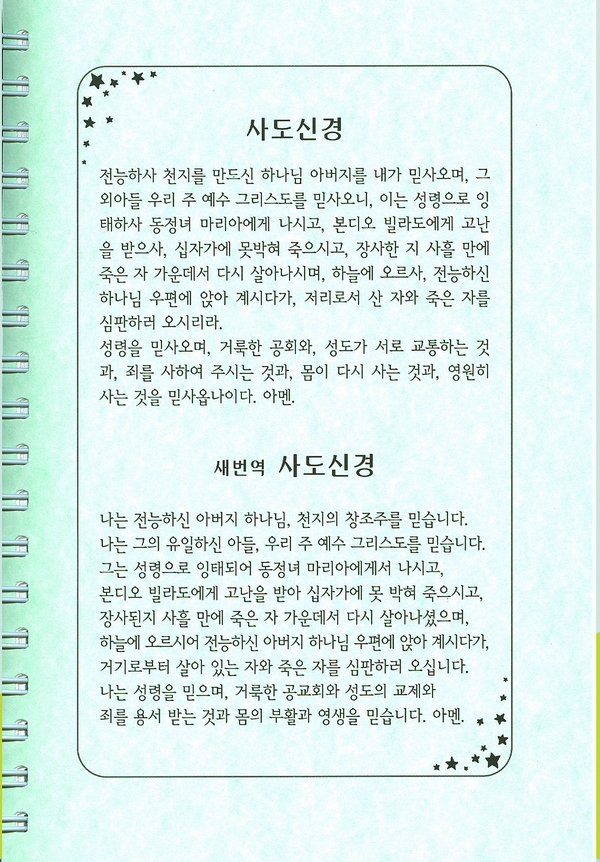 사도신경
전능하사 천지를 만드신 하나님 아버지를 내가 믿사오며, 그
외아들 우리 주 예수 그리스도를 믿사오니, 이는 성령으로 잉
태하사 동정녀 마리아에게 나시고, 본디오 빌라도에게 고난
을 받으사, 십자가에 못박혀 죽으시고, 장사한 지 사흘 만에
죽은 자 가운데서 다시 살아나시며, 하늘에 오르사, 전능하신
하나님 우편에 앉아 계시다가, 저리로서 산 자와 죽은 자를
심판하러 오시리라.
성령을 믿사오며, 거룩한 공회와, 성도가 서로 교통하는 것
과, 죄를 사하여 주시는 것과, 몸이 다시 사는 것과, 영원히
사는 것을 믿사옵나이다. 아멘.
새번역 사도신경
나는 전능하신 아버지 하나님, 천지의 창조주를 믿습니다.
나는 그의 유일하신 아들, 우리 주 예수 그리스도를 믿습니다.
그는 성령으로 잉태되어 동정녀 마리아에게서 나시고,
본디오 빌라도에게 고난을 받아 십자가에 못 박혀 죽으시고,
장사된지 사흘 만에 죽은 자 가운데서 다시 살아나셨으며,
하늘에 오르시어 전능하신 아버지 하나님 우편에 앉아 계시다가,
거기로부터 살아 있는 자와 죽은 자를 심판하러 오십니다.
나는 성령을 믿으며, 거룩한 공교회와 성도의 교제와
죄를 용서 받는 것과 몸의 부활과 영생을 믿습니다. 아멘.